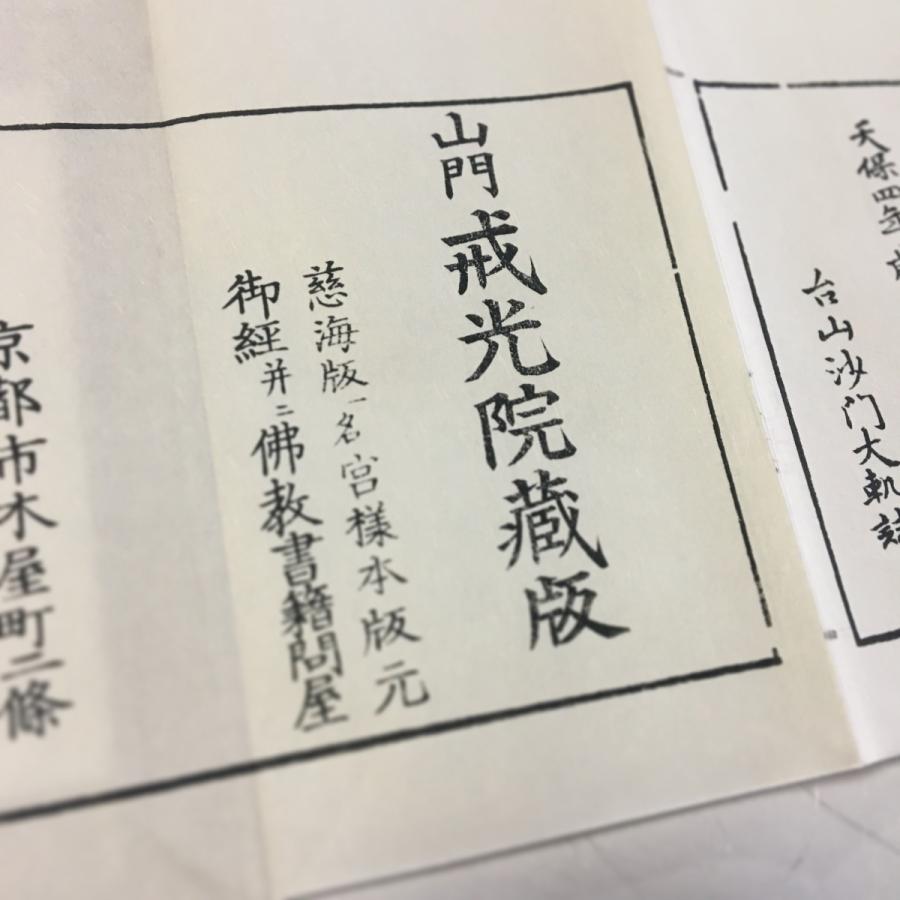 天保四年
台山沙門大軌誌
山門戒光院藏版
慈海版一名宮樣本版元
御經并ニ佛教書籍問屋
京都市木屋町二條